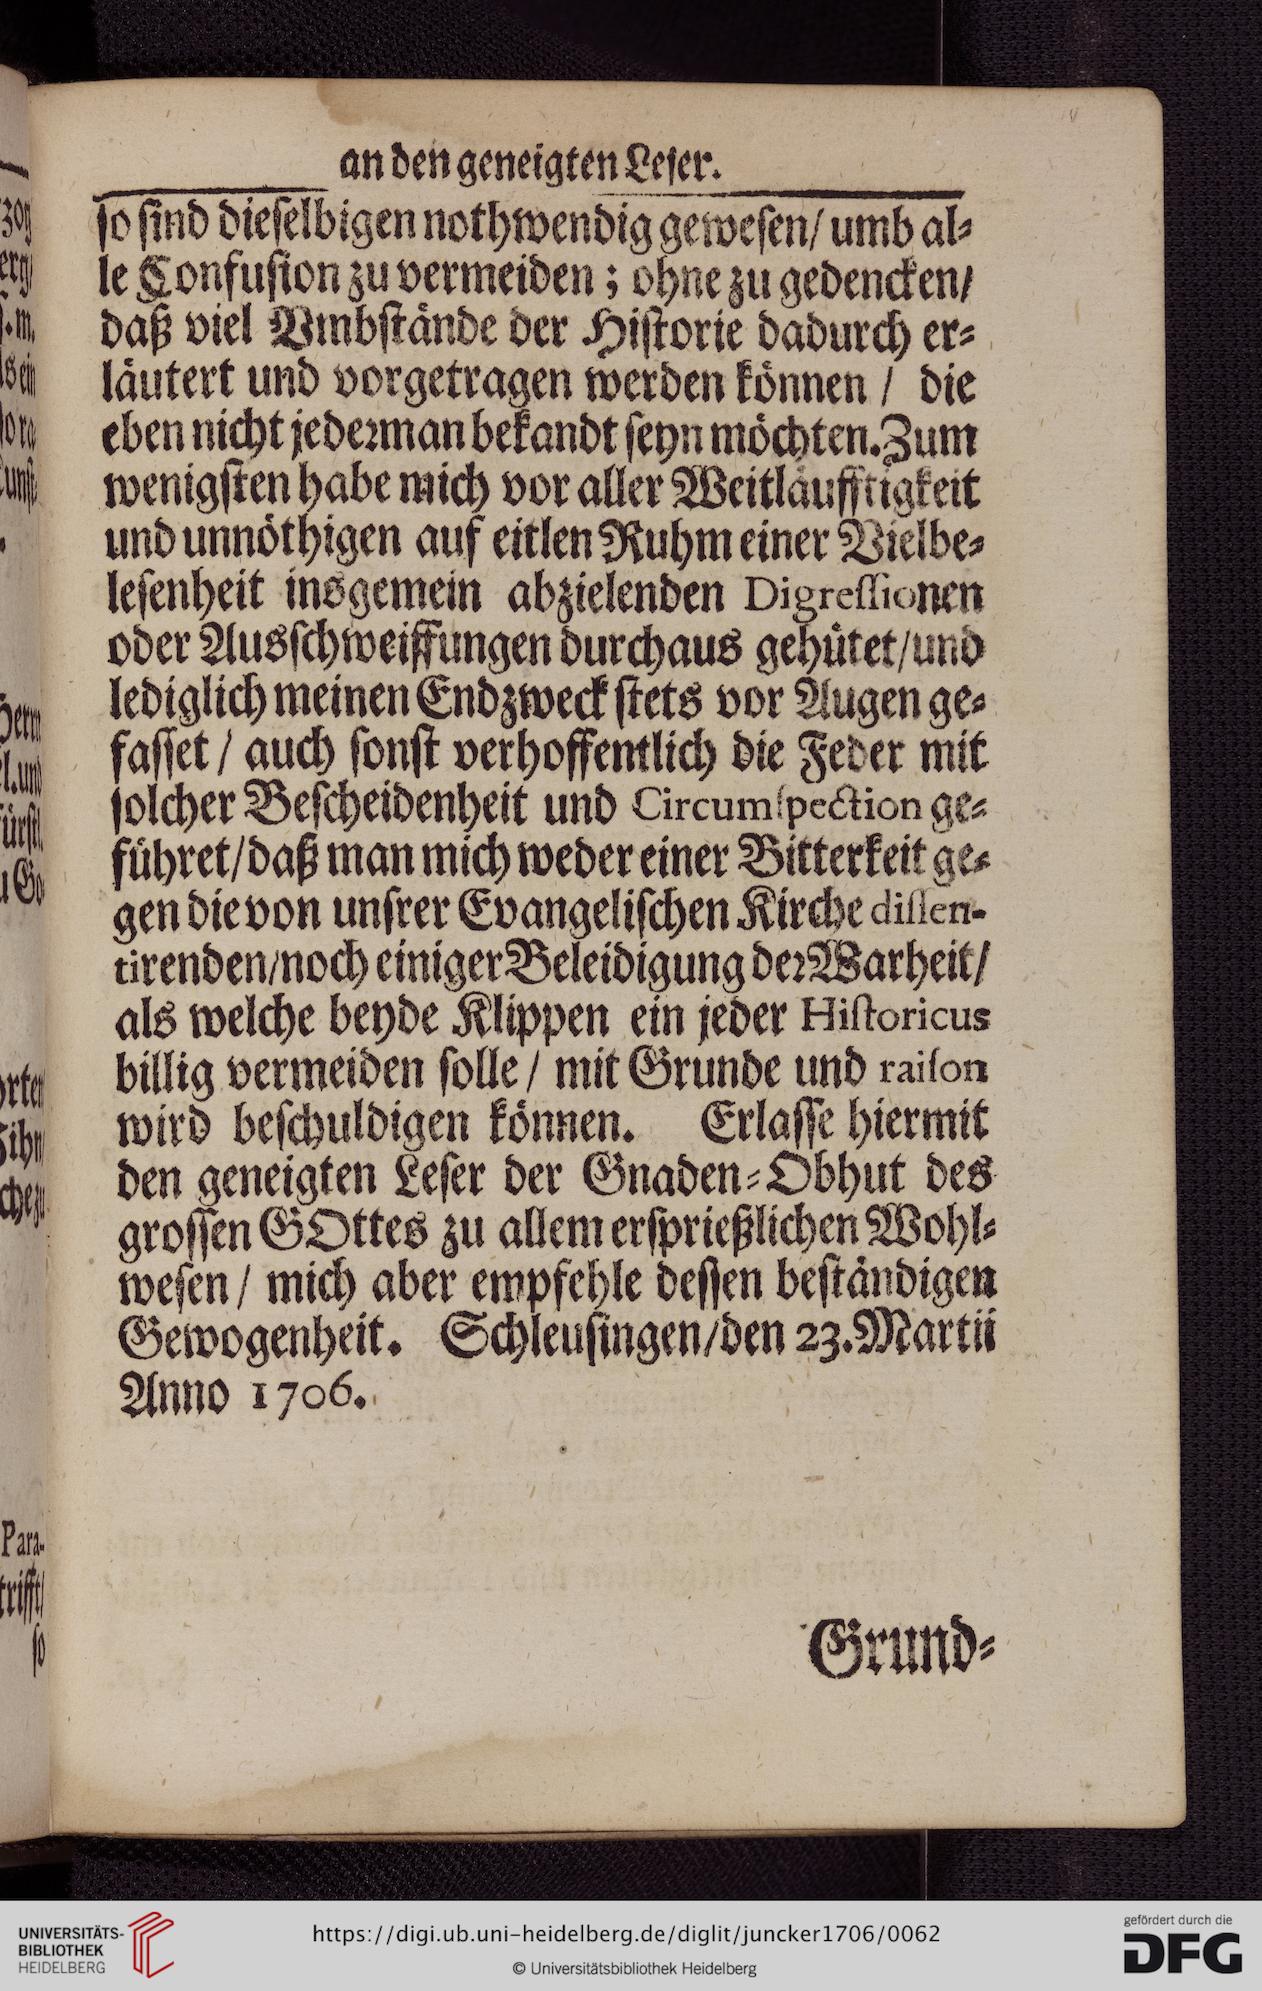 an den geneigten Leſer.
ſo ſind dieſelbigen nothwendig geweſen/ umb al⸗
le Confuſion zu vermeiden ; ohne zu gedencken/
daß viel Vmbſtände der Hiſtorie dadurch er⸗
läutert und vorgetragen werden können / die
eben nicht jedeꝛman bekandt ſeyn möchten. Zum
wenigſten habe mich vor aller Weitläufftigkeit
und unnöthigen auf eitlen Ruhm einer Vielbe⸗
leſenheit insgemein abzielenden Digreſſionen
oder Ausſchweiffungen durchaus gehütet/und
lediglich meinen Endzweck ſtets vor Augen ge⸗
faſſet / auch ſonſt verhoffentlich die Feder mit
ſolcher Beſcheidenheit und Circumſpection ge⸗
führet/daß man mich weder einer Bitterkeit ge⸗
gen die von unſrer Evangeliſchen Kirche diſſen-
tirenden/noch einiger Beleidigung deꝛ Warheit/
als welche beyde Klippen ein jeder Hiſtoricus
billig vermeiden ſolle / mit Grunde und raiſon
wird beſchuldigen können. Erlaſſe hiermit
den geneigten Leſer der Gnaden⸗Obhut des
groſſen GOttes zu allem erſprießlichen Wohl⸗
weſen / mich aber empfehle deſſen beſtändigen
Gewogenheit. Schleuſingen/den 23. Martii
Anno 1706.
Grund⸗
zog
erg/
ſ. m.
ls ein
Herrn
l. und
ürſtl.
u Go⸗
Para-
trifft/
ſo
UNIVERSITÄTS-
BIBLIOTHEK
HEIDELBERG
https://digi.ub.uni-heidelberg.de/diglit/juncker1706/0062
© Universitätsbibliothek Heidelberg
gefördert durch die
DFG